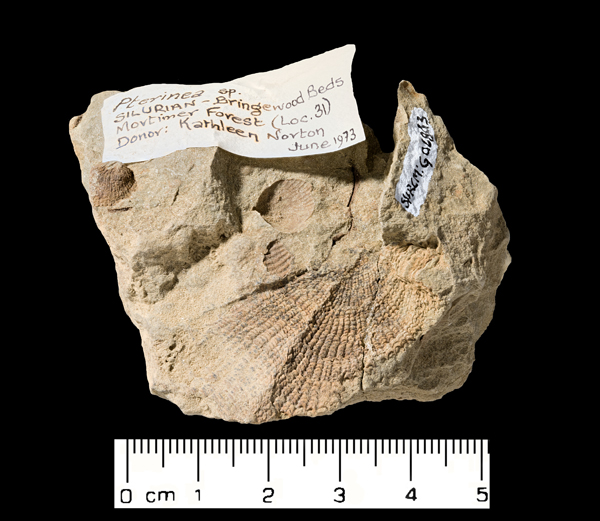 Pterinea sp.
SILURIAN - Bringewood Beds
Mortimer Forest (Loc. 31)
Donor: Kathleen Norton
June 1973
0 cm 1 2 3 4 5